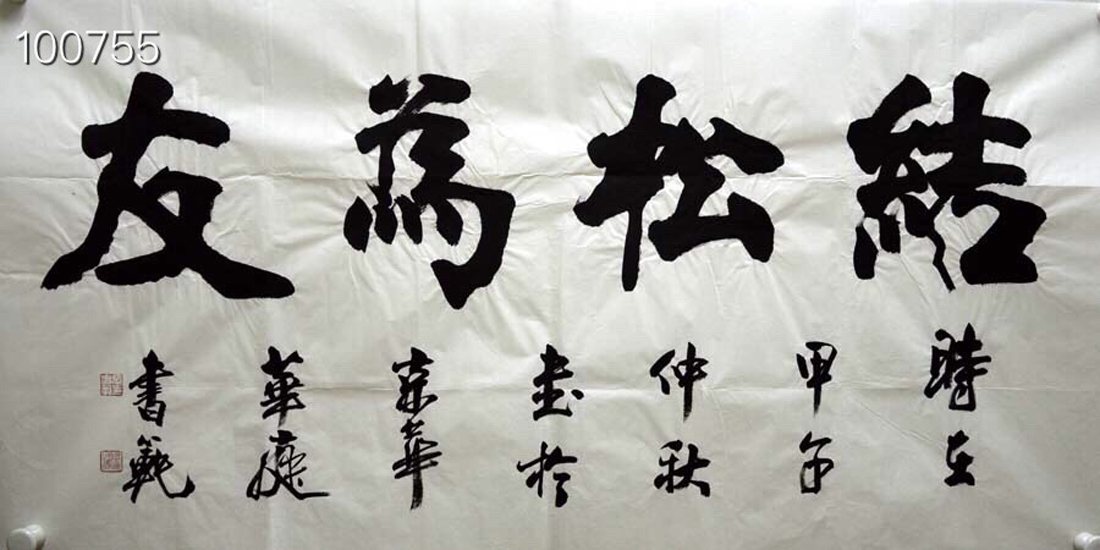 100755
結松為友
時在
甲午
仲秋
書於
京華
華庭
書範